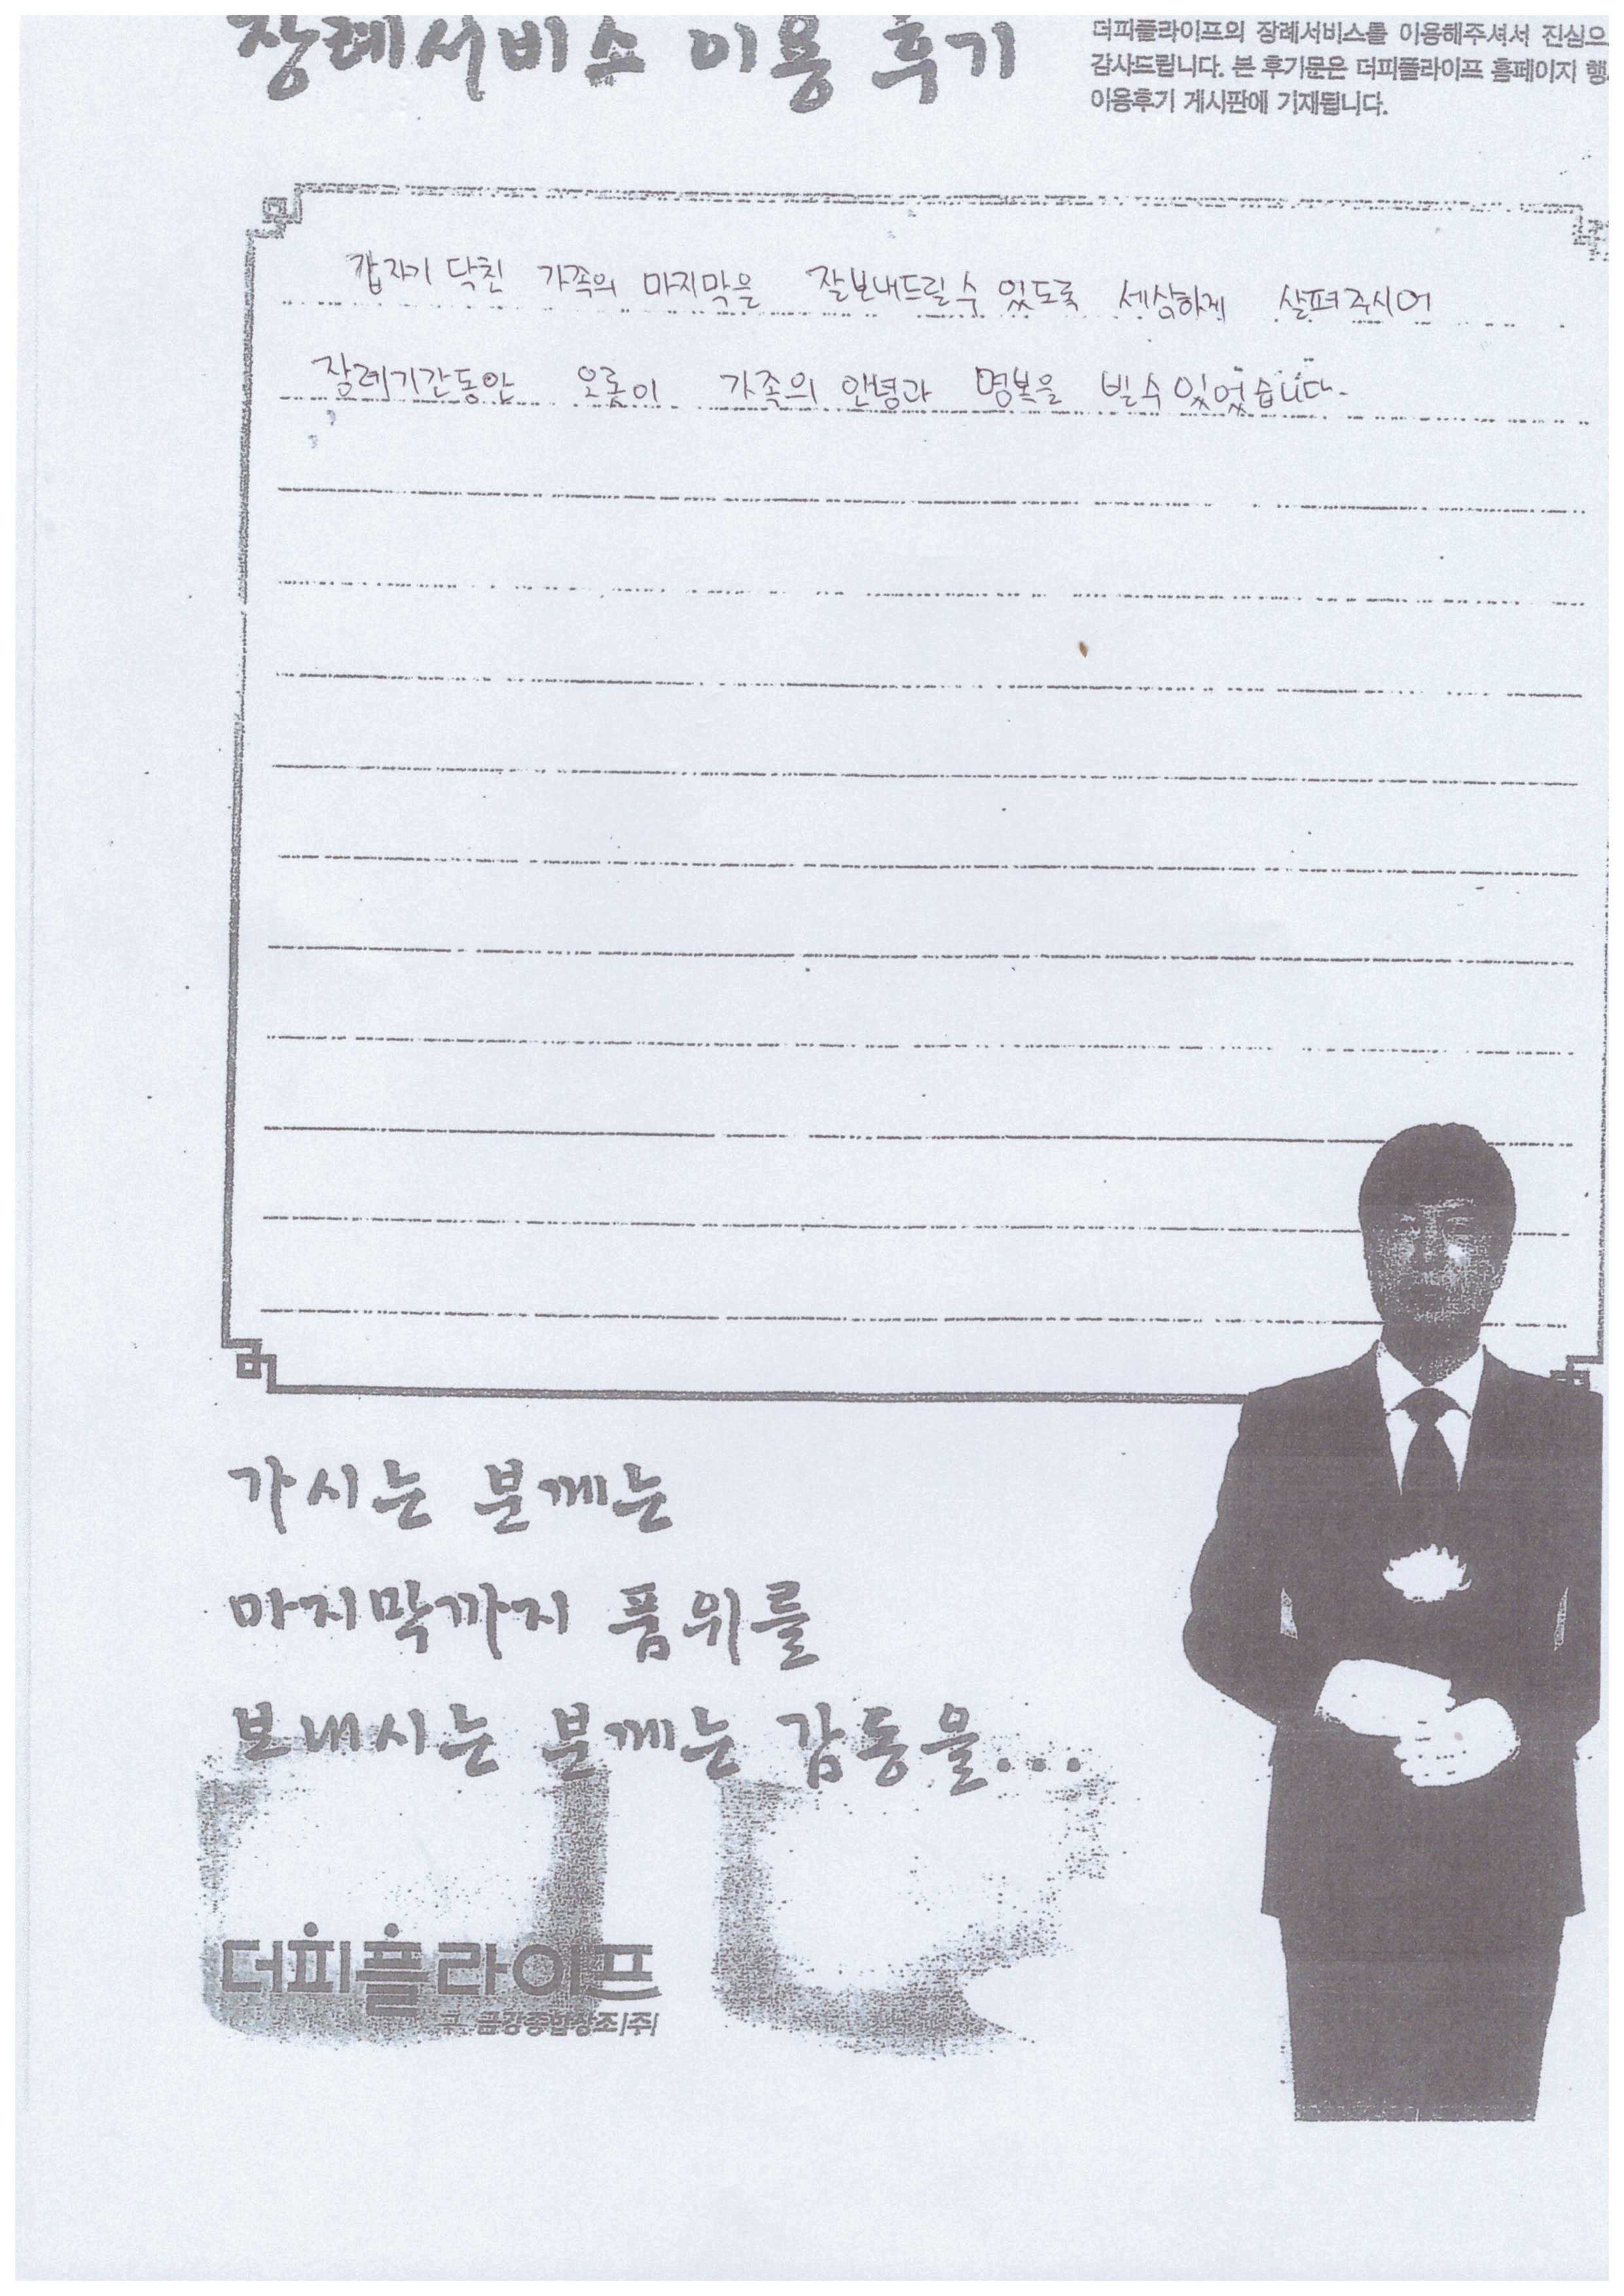 장례서비스 이용 후기
더피플라이프의 장례서비스를 이용해주셔서 진심으
감사드립니다. 본 후기문은 더피플라이프 홈페이지 행
이용후기 게시판에 기재됩니다.
갑자기 닥친 가족의 마지막을 잘보내드릴수 있도록 세심하게 살펴주시어
장례기간동안 오롯이 가족의 안녕과 명복을 빌수있었습니다.
가시는 분께는
마지막까지 품위를
보내시는 분께는 감동을...
더피플라이프
금강종합상조(주)